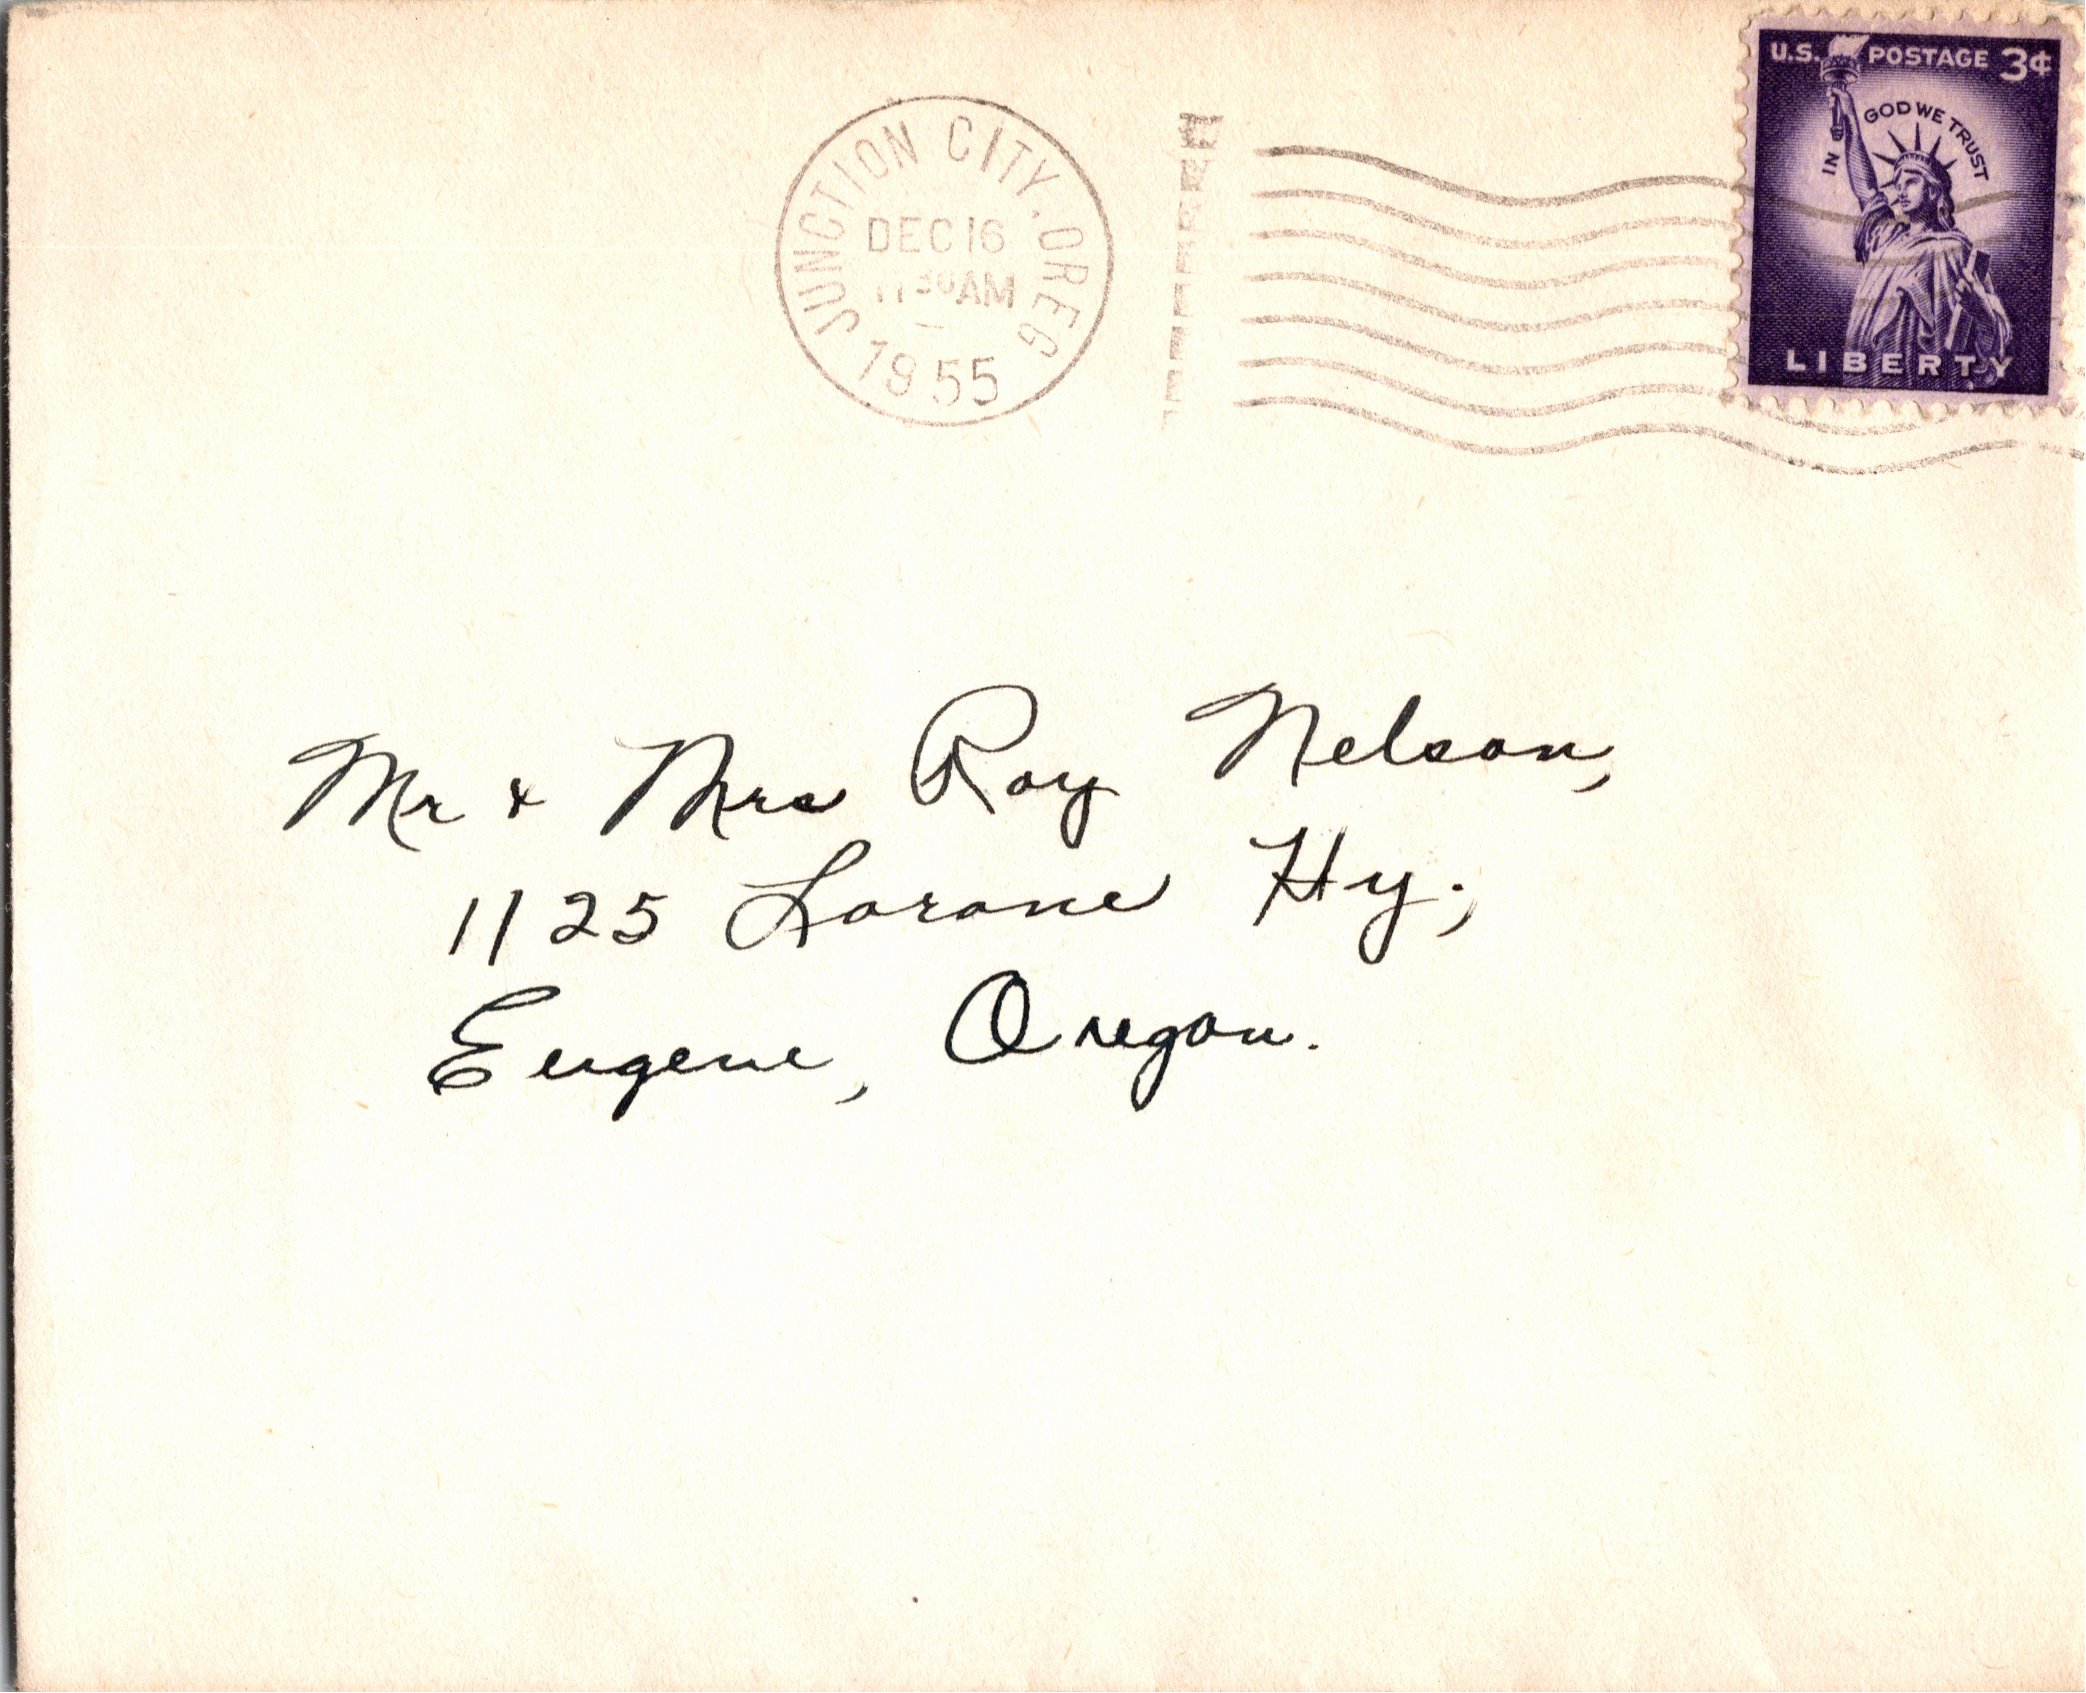 U.S. POSTAGE 3¢
IN GOD WE TRUST
LIBERTY
JUNCTION CITY, OREG
DEC 16
11 30 AM
1955
Mr & Mrs Roy Nelson,
1125 Lorane Hy.,
Eugene, Oregon.